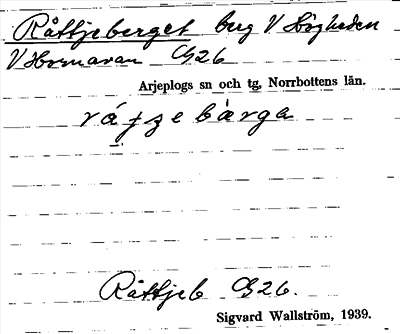 Råttjeberget berg V Högheden
V Hornavan G26
Arjeplogs sn och tg, Norrbottens län.
Råttjeb G26.
Sigvard Wallström, 1939.